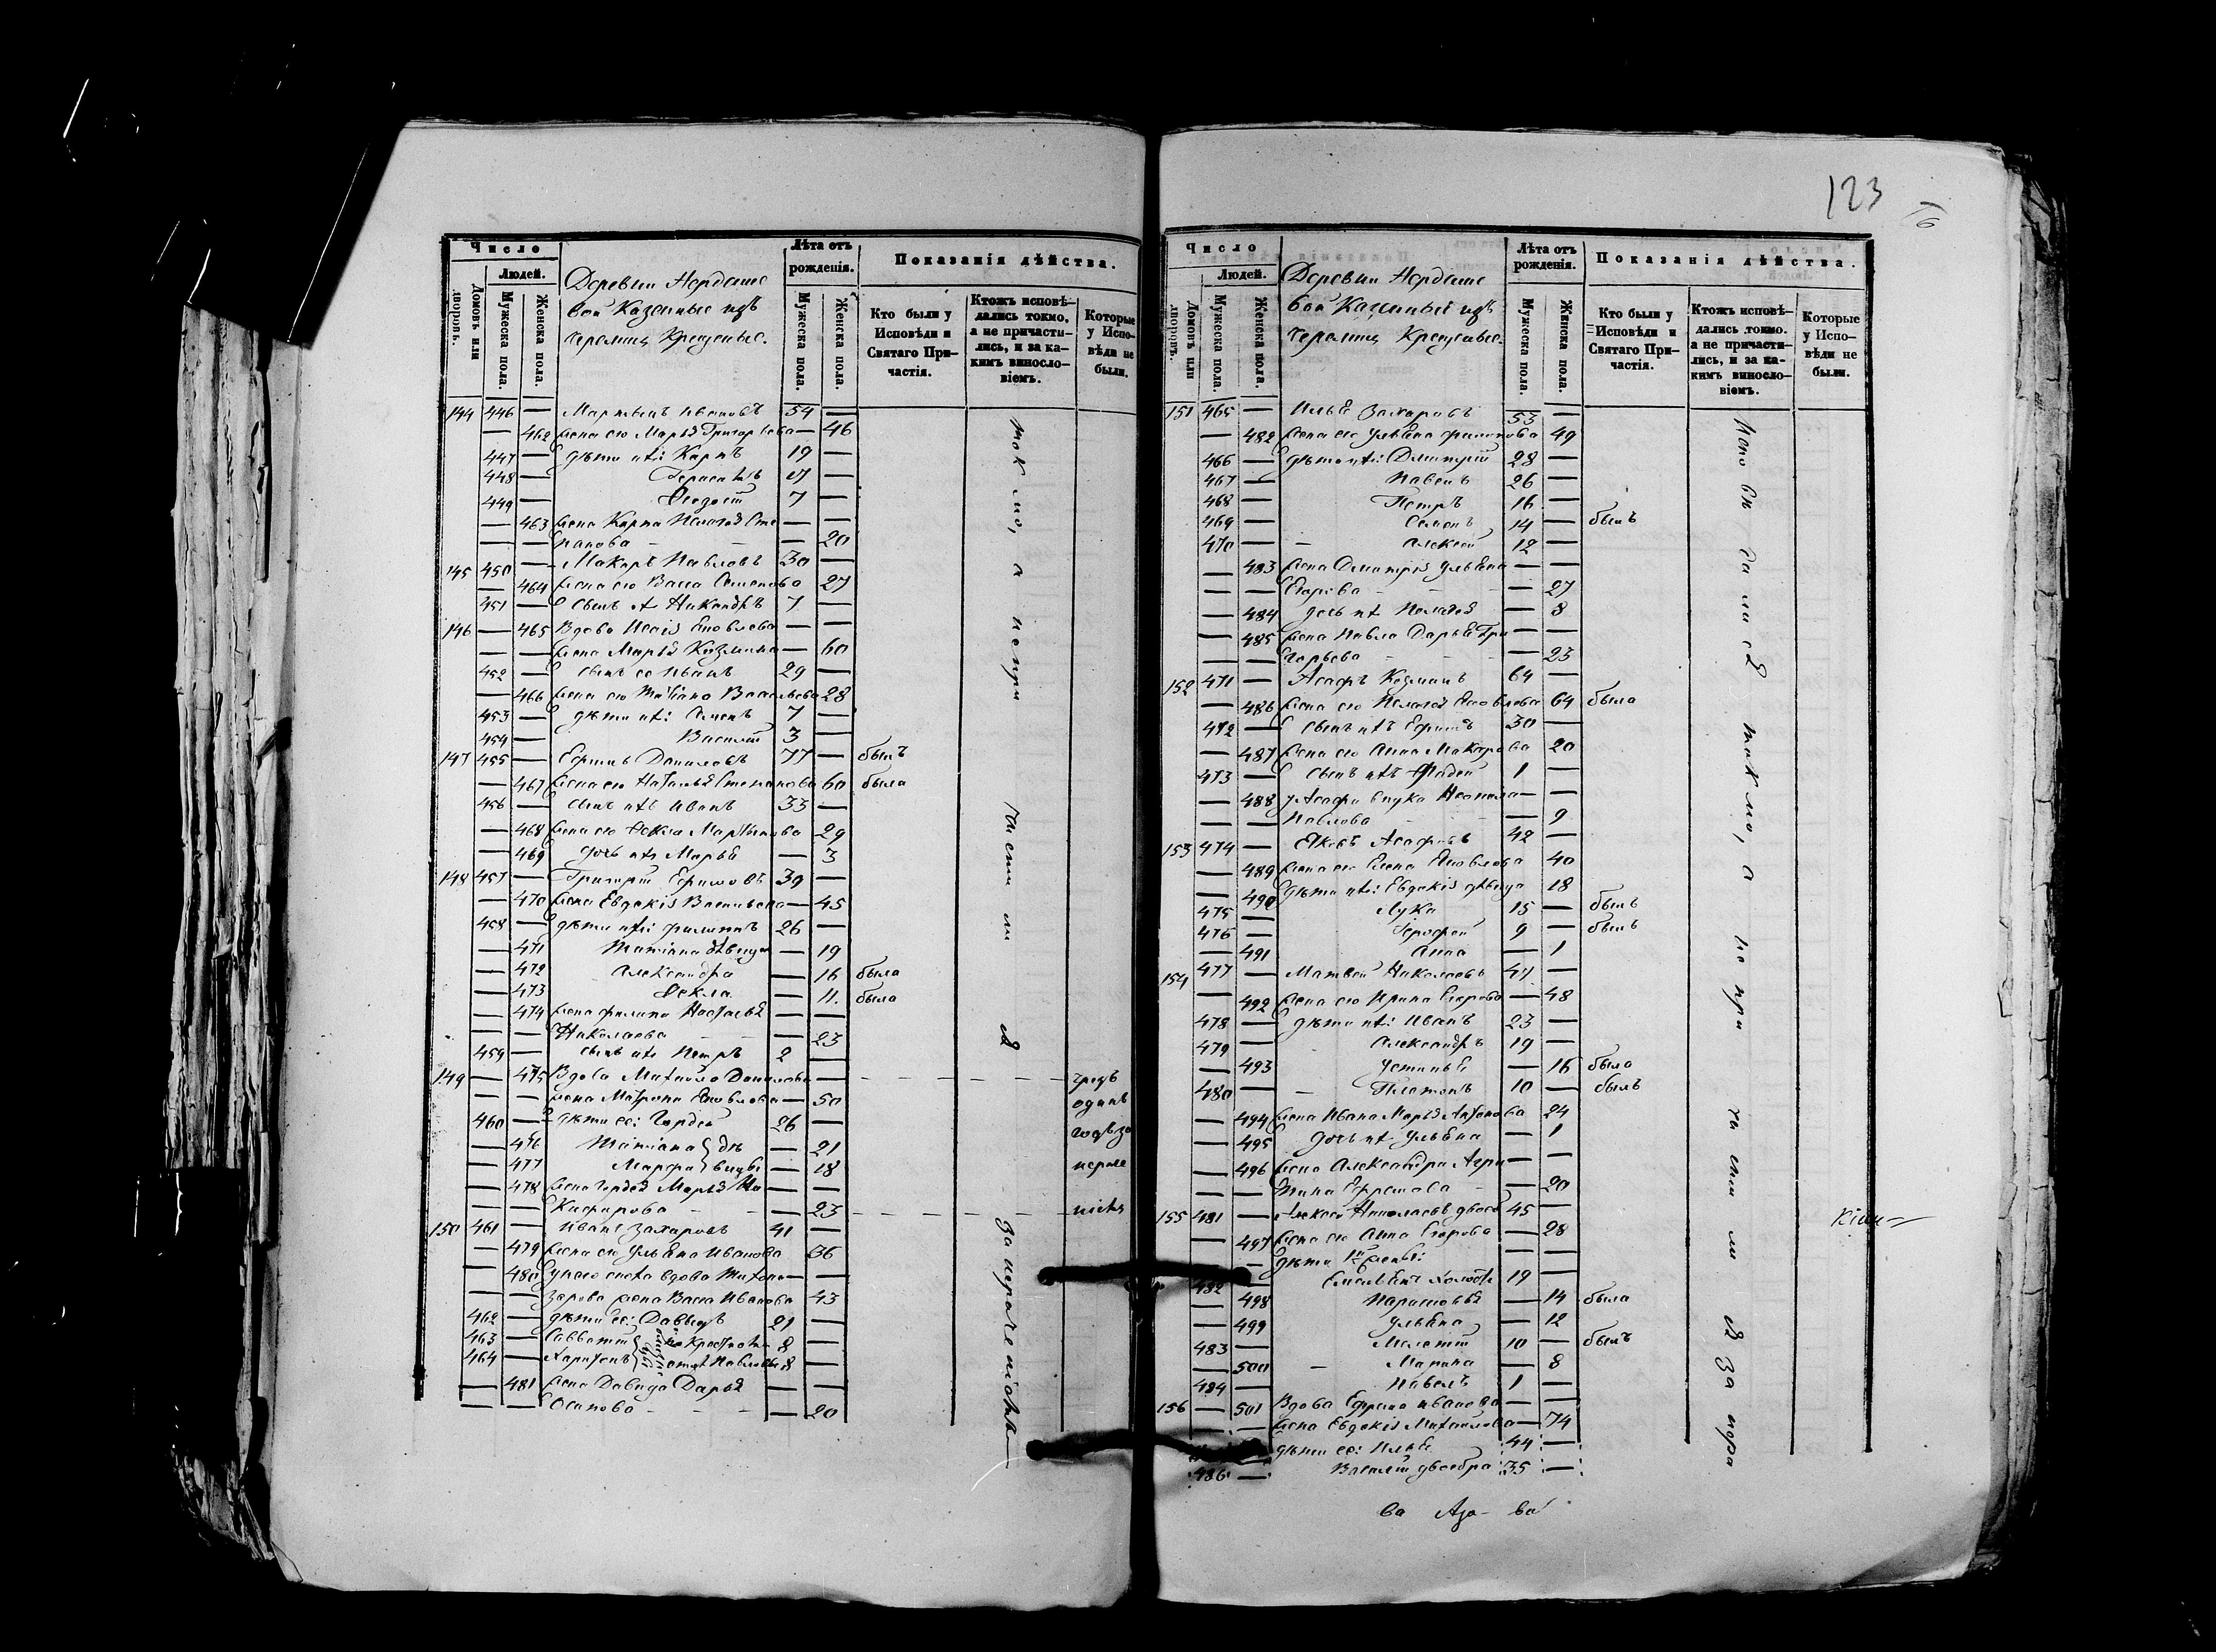 123
Число
Людей.
Домовъ или дворовъ.
Мужеска пола.
Женска пола.
Деревни
вой Казенные изъ
черемис Крещеные.
Лѣта отъ рожденія.
Мужеска пола.
Женска пола.
Показанія дѣйства.
Кто были у Исповѣди и Святаго Причастія.
Ктожъ исповѣдались токмо, а не причастились, и за какимъ винословіемъ.
Которые у Исповѣди не были.
144 446 — Мартынъ Ивановъ 54 —
— 462 Жена его Марья Григорьева — 46
447 — дѣти ихъ: Карпъ 19 —
448 — Герасимъ —
449 — Федосій 7 —
— 463 Жена Карпа Пелагея Сте — —
— — панова — 20
145 450 — Макаръ Павловъ 30 —
— 464 жена его Васса Семенова 27
451 — сынъ ихъ Никандръ 7 —
146 — 465 Вдова Исаія Яковлева — —
— — жена Марья Козмина — 60
452 — сынъ ее Иванъ 29 —
— 466 жена его Татіана Васильева 28
453 — дѣти ихъ: Семенъ 7 —
454 — Василій 3 —
147 455 — Ефимъ Даниловъ 77 — былъ
— 467 жена его Наталья Степанова 60 была
456 — сынъ ихъ Иванъ 33 —
— 468 жена его Фекла Мартынова 29
— 469 дочь ихъ Марья — 3
148 457 — Григорій Ефимовъ 39 —
— 470 жена Евдокія Васильева — 45
458 — дѣти ихъ: Филиппъ 26 —
— 471 Татіана дѣвица — 19
— 472 Александра — 16 была
— 473 Фекла — 11. была
— 474 жена Филипа Настасья — —
— — Николаева — 23
459 — сынъ ихъ Петръ 2 —
149 — 475 Вдова Михайло Данилова —
— — жена Матрона Яковлева — 50
460 — дѣти ее: Гордей 26 —
— 476 Татіана } дѣ — 21
— 477 Марфа } вицы — 18
— 478 жена Гордея Марья Ни — —
— — кифорова — 23
150 461 — Иванъ Захаровъ 41 —
— 479 жена его Ульяна Иванова 36
— 480 у него сноха вдова — —
— — Захарова жена Васса Иванова 43
462 — дѣти ее: Давыдъ 21 —
463 — Савватій 8 —
464 — Харитонъ 8 —
— 481 жена Давида Дарья — —
— — Осипова — 20
токмо, а не причастились
за нерачениемъ
чрезъ
одинъ
годъ за
нераче
ніемъ
Число
Людей.
Домовъ или дворовъ.
Мужеска пола.
Женска пола.
Деревни
вой Казенный изъ
черемис Крещеные.
Лѣта отъ рожденія.
Мужеска пола.
Женска пола.
Показанія дѣйства.
Кто были у Исповѣди и Святаго Причастія.
Ктожъ исповѣдались токмо. а не причастились, и за какимъ винословіемъ.
Которые у Исповѣди не были.
151 465 — Илья Захаровъ 53 —
— 482 жена его Ульяна Филипова 49
466 — дѣти ихъ: Дмитрій 28 —
467 — Павелъ 26 —
468 — Петръ 16 —
469 — Семенъ 14 — былъ
470 — Алексей 12 —
— 483 жена Дмитрія Ульяна — —
— — Егорова — 27
— 484 дочь ихъ Пелагея — 8
— 485 жена Павла Дарья Гри — —
— — горьева — 23
152 471 — Асафъ Козминъ 64 —
— 486 жена его Пелагея Яковлева 64 была
472 — сынъ ихъ Ефимъ 30 —
— 487 жена его Анна Макарова 20
473 — сынъ ихъ Фадей 1 —
— 488 у Асафа внука — —
— — Павлова — 9
153 474 — Яковъ Асафовъ 42 —
— 489 жена его Елена Яковлева 40
— 490 дѣти ихъ: Евдокія дѣвица 18
475 — Лука 15 — былъ
476 — Ерофей 9 — былъ
— 491 Анна — 1
154 477 — Матвей Николаевъ 47 —
— 492 жена его Ирина Егорова — 48
478 — дѣти ихъ: Иванъ 23 —
479 — Александръ 19 —
— 493 Устинья — 16 была
480 — Платонъ 10 — былъ
— 494 жена Ивана Марья Антонова 24
— 495 дочь ихъ Ульяна — 1
— 496 жена Александра Агри — —
— — пина Ефремова — 20
155 481 — Алексей Николаевъ двоеб 45 —
— 497 жена его Анна Егорова — 28
— дѣти 1й жены: — —
482 — Емельянъ холостъ 19 —
— 498 Парасковья — 14 была
— 499 Ульяна — 12
483 — Мелетій 10 — былъ
— 500 Марина — 8
484 — Павелъ 1 —
156 — 501 Вдова Ефрема Иванова — —
— — жена Евдокія Михайлова — 74
дѣти ее: Илья 44 —
486 — Василій двоебра 35 —
Исповѣдались токмо, а не причастились за нера
ніемъ